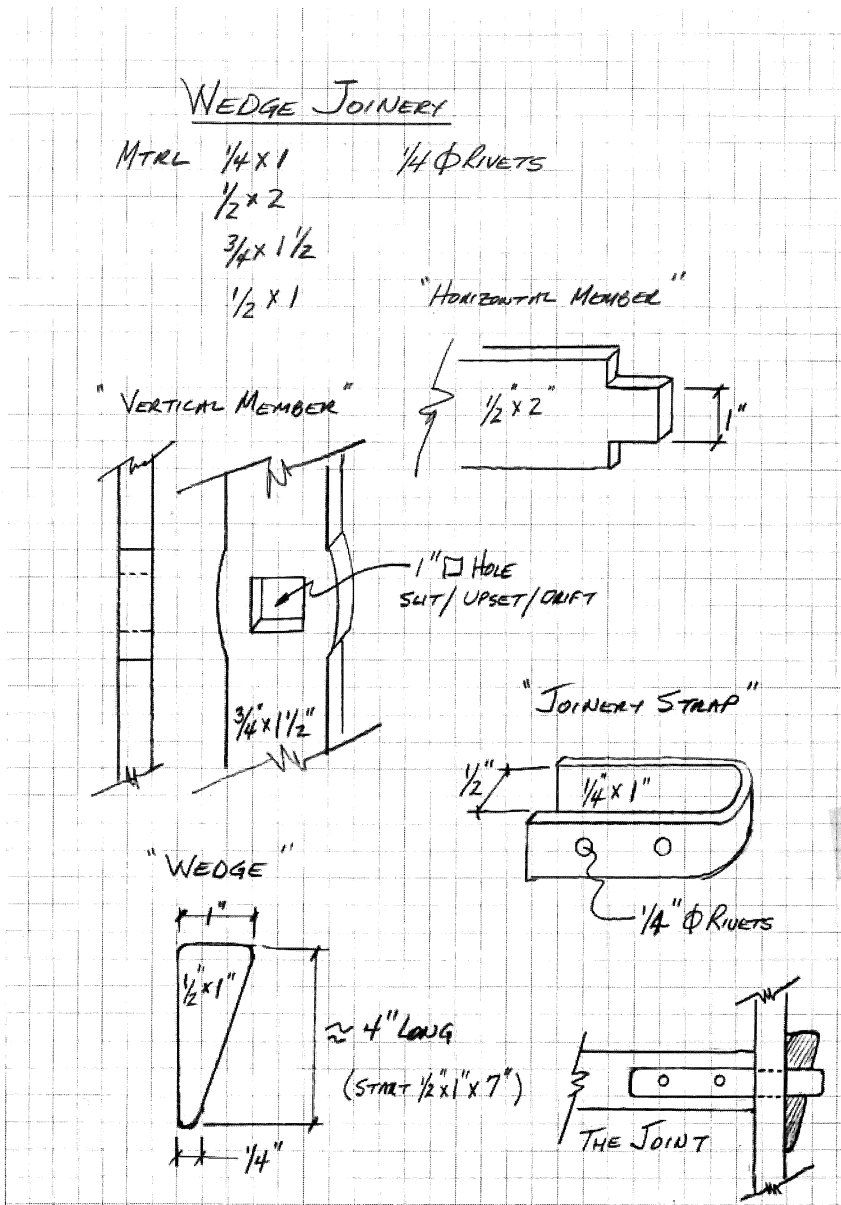 WEDGE JOINERY
MTRL 1/4 x 1 1/4 Ø RIVETS
1/2 x 2
3/4 x 1 1/2
1/2 x 1
"HORIZONTAL MEMBER"
1/2" x 2"
1"
"VERTICAL MEMBER"
1" □ HOLE
SLIT/UPSET/DRIFT
3/4" x 1 1/2"
"JOINERY STRAP"
1/2"
1/4" x 1"
1/4" Ø RIVETS
"WEDGE"
1"
1/2" x 1"
≈ 4" LONG
(START 1/2" x 1" x 7")
1/4"
THE JOINT